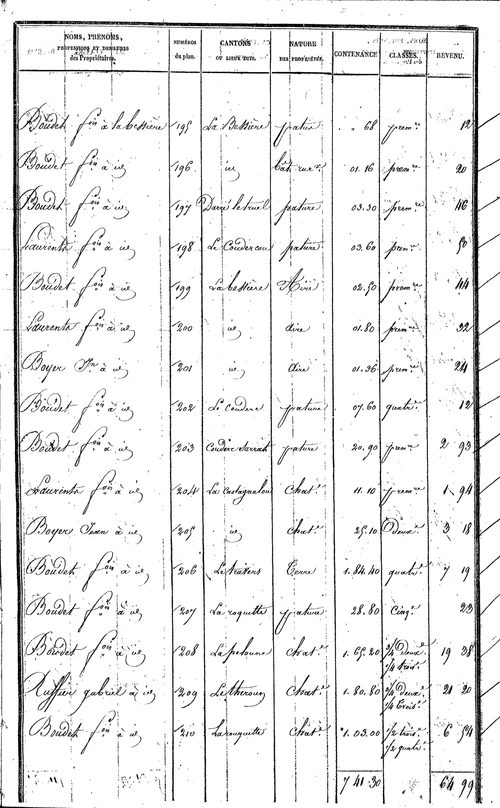 NOMS, PRENOMS, PROFESSION ET DEMEURES des Propriétaires. NUMÉROS du plan. CANTONS OU LIEUX DITS. NATURE DES PROPRIÉTÉS. CONTENANCE. CLASSES. REVENU.
Boudet fcois à la bessière 195 La Bessière pature " 68 prem.re 12
Boudet fcois à id 196 id bât. rur. 01.16 prem.re 20
Boudet fcois à id 197 pature 03.30 prem.re 116
Laurents fcois à id 198 Le Coudercou pature 03.60 prem.re 50
Boudet fcois à id 199 La bessière Aire 02.50 prem.re 44
Laurents fcois à id 200 id aire 01.80 prem.re 32
Boyer Jn à id 201 id Aire 01.36 prem.re 24
Boudet fcois à id 202 Le couderc pature 07.60 quatr.e 12
Boudet fcois à id 203 Couderc pature 20.90 prem.re 2 93
Laurents fcois à id 204 La Castagnalou chat.e 11.10 prem.re 1 94
Boyer Jean à id 205 id chat.e 25.10 Deux.e 3 18
Boudet fcois à id 206 Terre 1.84.40 quatr.e 7 19
Boudet fcois à id 207 La roquette pature 28.80 Cinq.e 23
Boudet fcois à id 208 La peloune chat.e 1.65.20 3/4 Deux.e 19 38
1/4 trois.e
Ruffier gabriel à id 209 Le theron chat.e 1.80.80 3/4 Deux.e 21 20
1/4 trois.e
Boudet fcois à id 210 Larouquette chat.e 1.03.00 1/2 trois.e 6 54
1/2 quatr.e
7 41.30 64 99